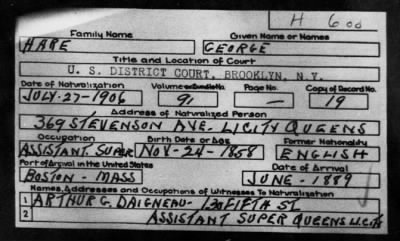 H 600
Family Name Given Name or Names
HARE GEORGE
Title and Location of Court
U. S. DISTRICT COURT, BROOKLYN, N.Y.
Date of Naturalization Volume or Bundle No. Page No. Copy of Record No.
JULY-27-1906 91 — 19
Address of Naturalized Person
369 STEVENSON AVE. L.I.CITY QUEENS
Occupation Birth Date or Age Former Nationality
ASSISTANT SUPER NOV-24-1858 ENGLISH
Port of Arrival in the United States Date of Arrival
BOSTON - MASS JUNE-1889
Names, Addresses and Occupations of Witnesses To Naturalization
1 ARTHUR G. DAIGNEAU- 130 FIFTH ST
2 ASSISTANT SUPER QUEENS L.I.City